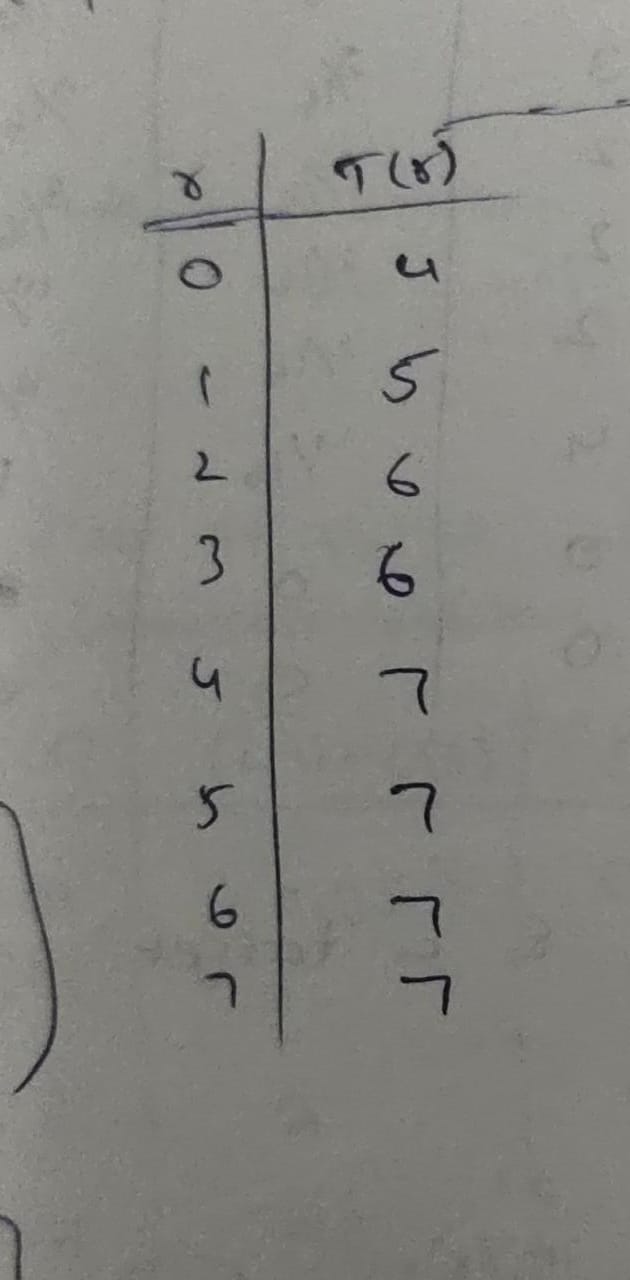 r T(r)
0 4
1 5
2 6
3 6
4 7
5 7
6 7
7 7